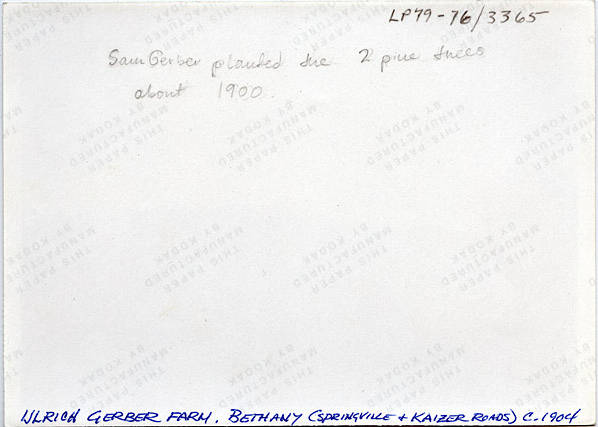 LP79-76/3365
Sam Gerber planted the 2 pine trees
about 1900.
THIS PAPER
MANUFACTURED
BY KODAK
ULRICH GERBER FARM, BETHANY (SPRINGVILLE + KAIZER ROADS) C. 1904